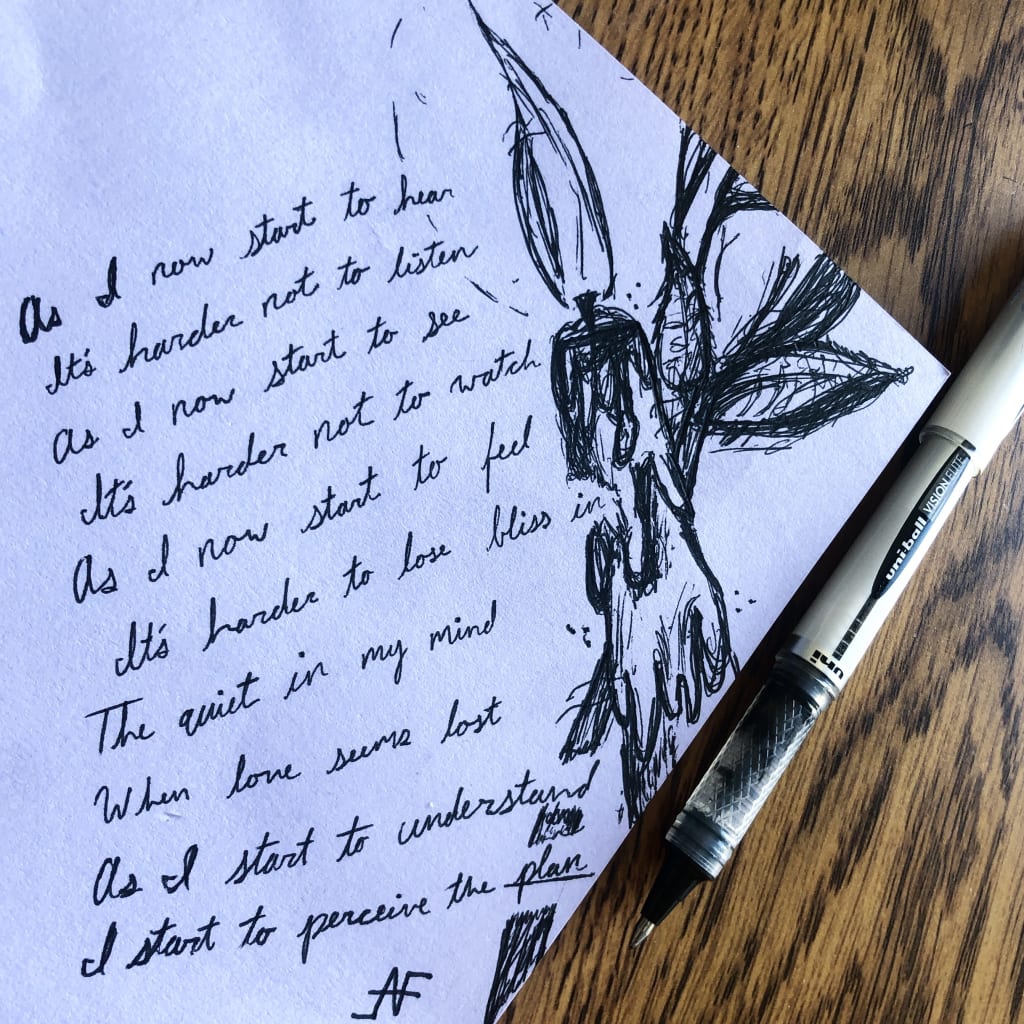 As I now start to hear
It's harder not to listen
As I now start to see
It's harder not to watch
As I now start to feel
It's harder to lose bliss in
The quiet in my mind
When love seems lost
As I start to understand
I start to perceive the plan
AF
uni-ball VISION ELITE
uni